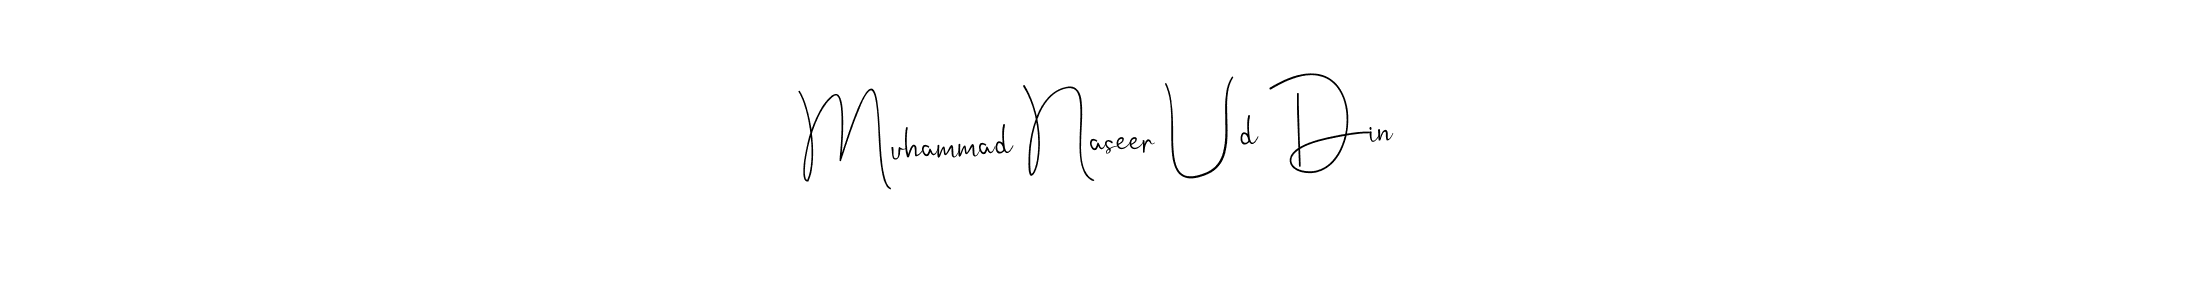 Muhammad Naseer Ud Din